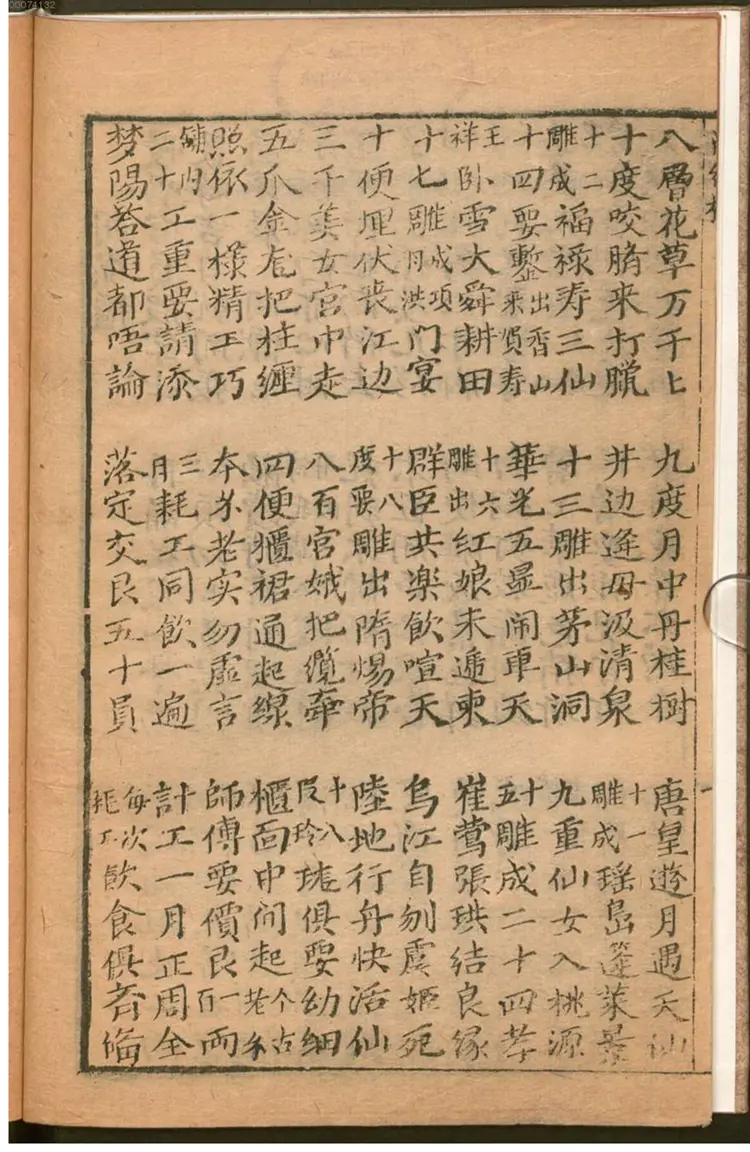 八層花草万千上 九度月中丹桂樹 唐皇遊月遇天仙
十度咬臍来打臘 井边逢母汲清泉 十一雕成瑶島蓬莱景
十二雕成福禄寿三仙 十三雕出茅山洞 九重仙女入桃源
十四要鏨出香山来賀寿 華光五显闹車天 十五雕成二十四孝
王祥卧雪大舜耕田 十六雕出红娘来递柬 崔莺張珙结良缘
十七雕成項洪门宴 群臣共楽飲喧天 烏江自刎虞姬死
十便埋伏丧江边 十八度要雕出隋惕帝 陸地行舟快活仙
三千美女宫巾走 八百宫娥把纜牵 十八玲珑俱要幼细
五爪金龙把柱纏 四便櫃裙通起線 櫃面中间起个古老
照依一様精工巧 本来老实勿虚言 師傅要價艮一百両
鋪内二十工重要請添 三日耗工同飲一遍 計工一月正周全
梦陽荅道都唔論 落定交艮五十員 每次耗工飲食俱齐備